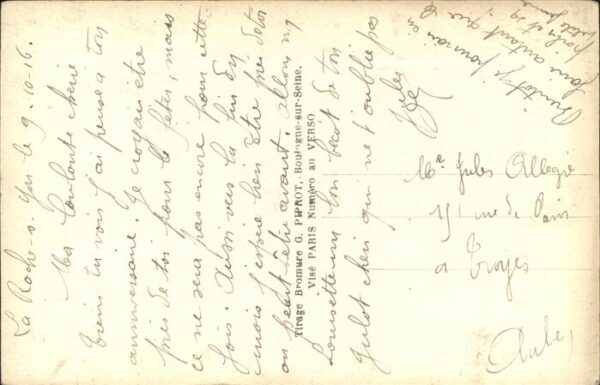 La Roche-s-Yon le 9-10-16.
Ma Louloute chérie
Tiens tu vois j'ai pensé à ton
anniversaire. Je croyais être
près de toi pour le fêter, mais
ce ne sera pas encore pour cette
fois. Aussi vers la fin du
mois j'espère bien être près de toi
ou peut être avant. allons ma
Louisette un bon bécot de ton
Julot chéri qui ne t'oublie pas
Jules
Tirage Bromure G. PIPROT, Boulogne-sur-Seine.
Visé PARIS Numéro au VERSO
Bientôt je pourrai en
faire autant que
Me Jules Allegre
151 rue de Paris
à Troyes
Aube